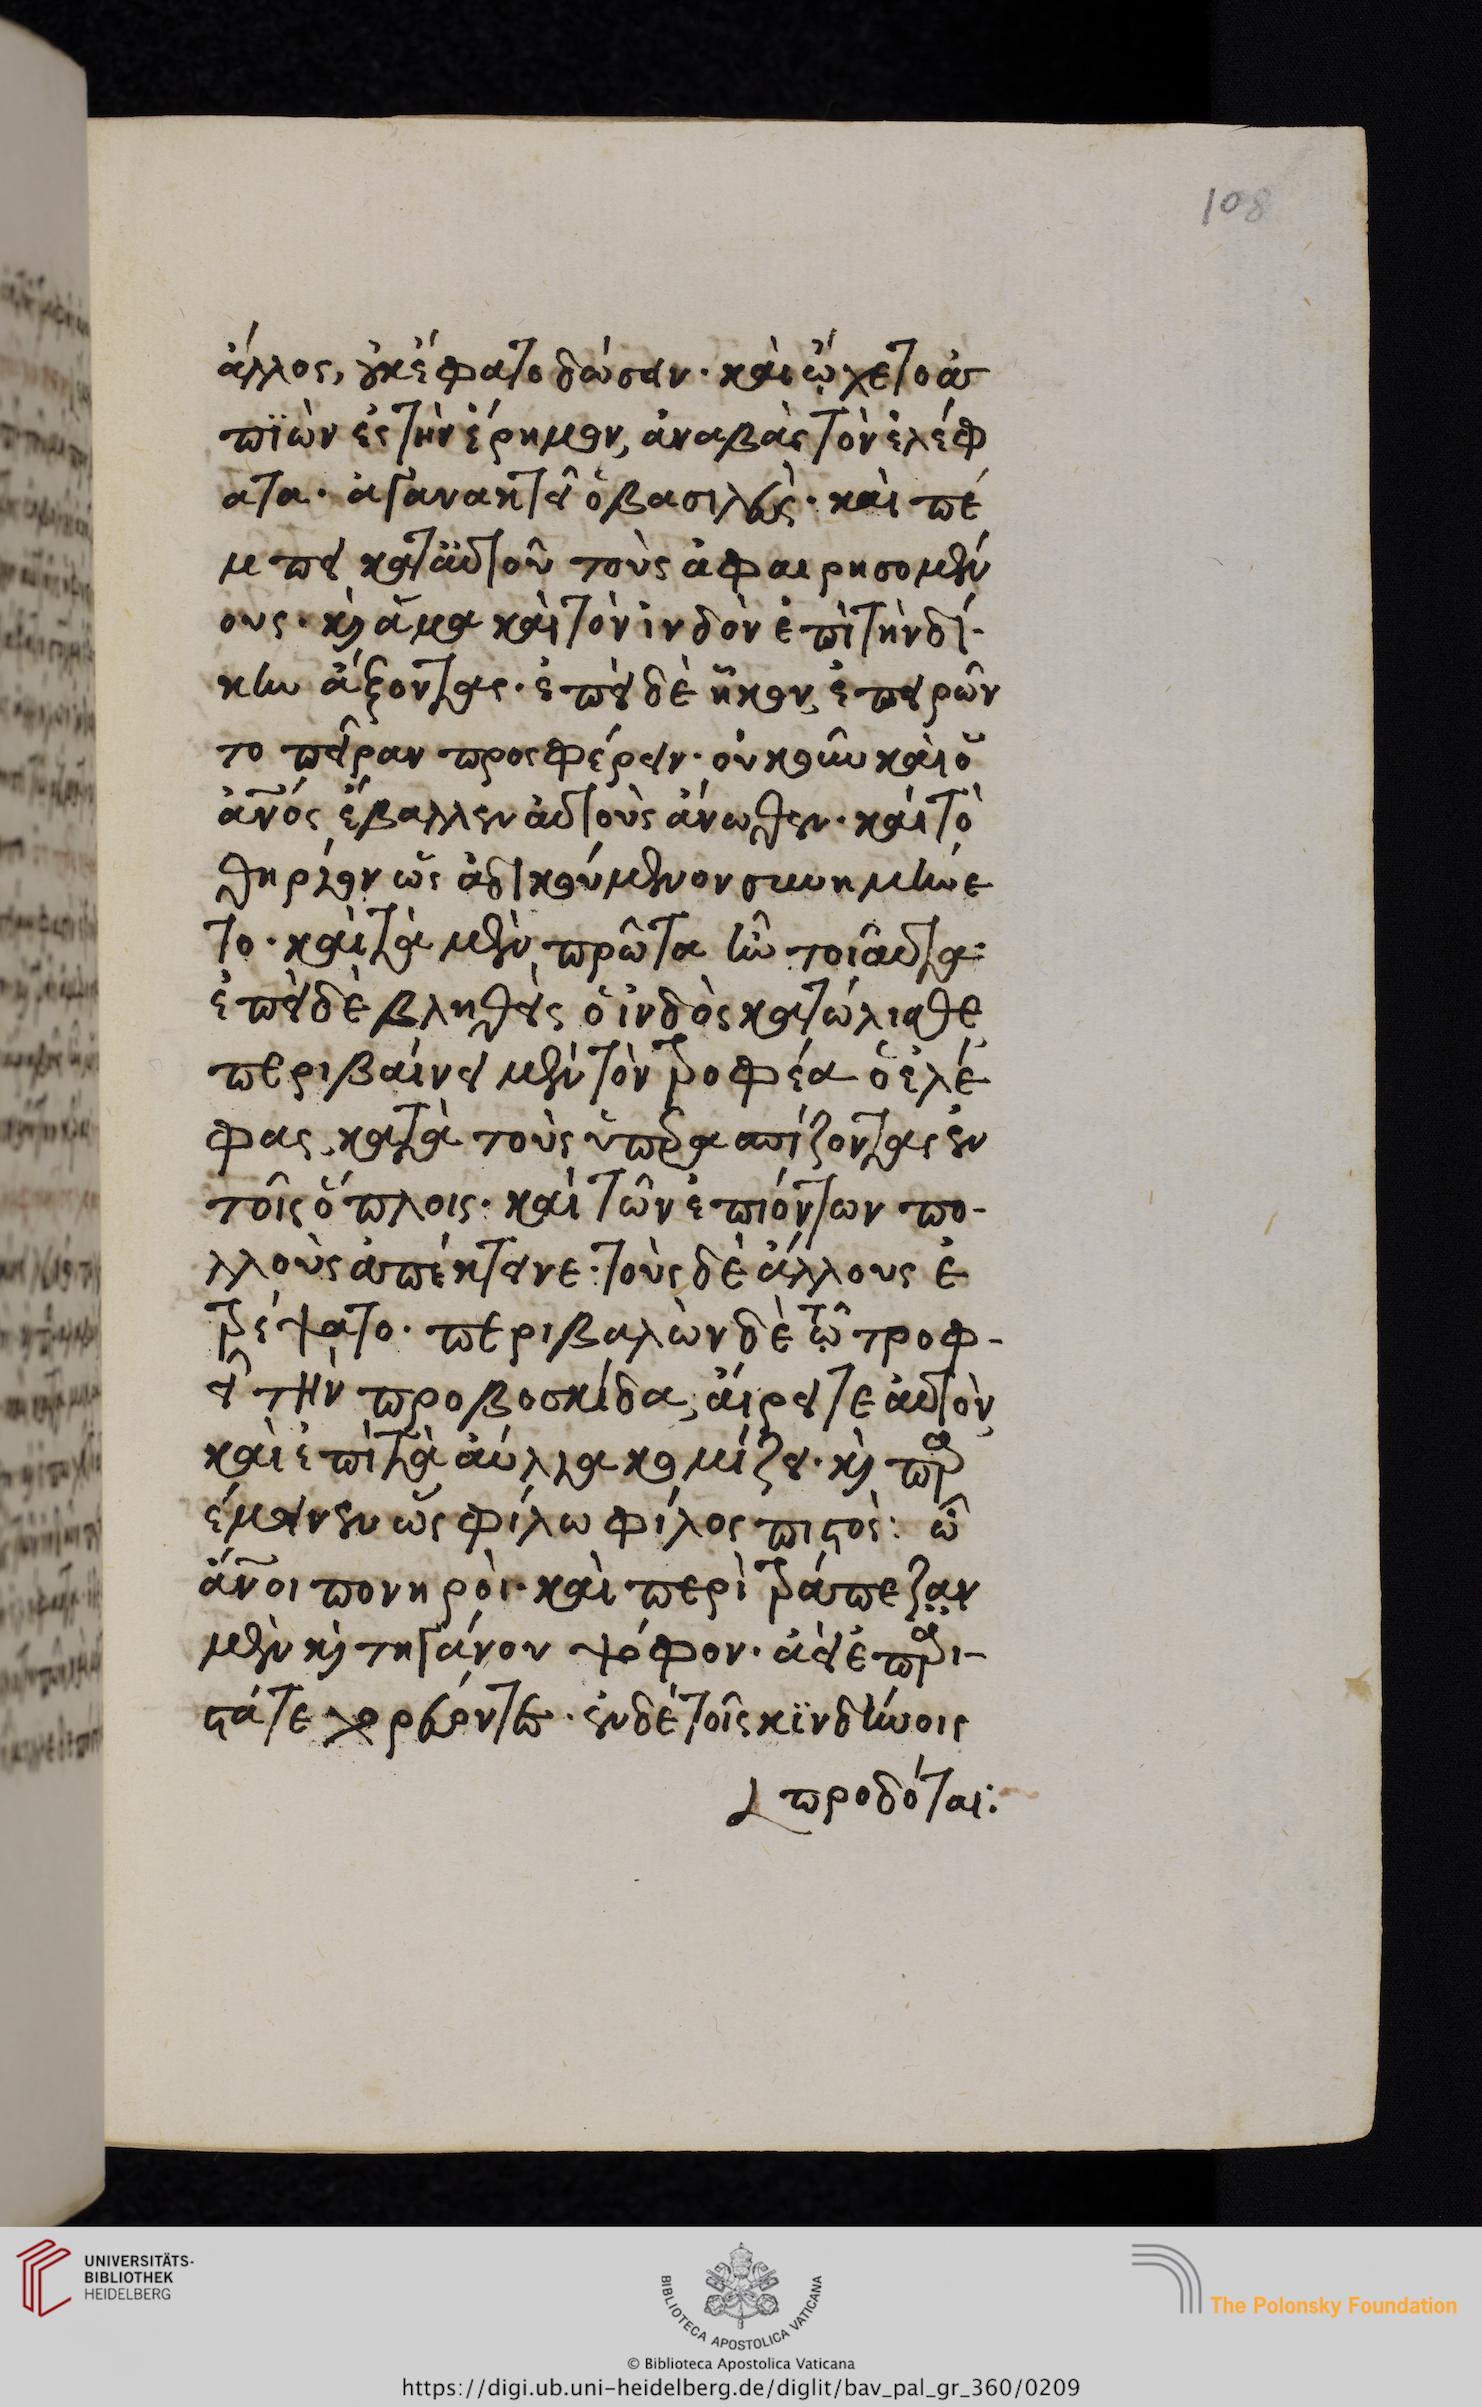 108
ἄλλος, οὐκ ἔφατο δώσειν· καὶ ᾤχετο ἀ
πϊὼν ἐς τὴν ἔρημον, ἀναβὰς τὸν ἐλέφ
ατα· ἀγανακτεῖ ὁ βασιλεὺς· καὶ πέ
μπει κατ' αὐτοῦ τοὺς ἀφαιρησομέν
ους· κὶ ἅμα καὶ τὸν ἰνδὸν ἐπὶ τὴν δί-
κην ἄξοντας· ἐπεὶ δὲ ἧκον, ἐπειρῶν
το πεῖραν προσφέρειν· οὐκοῦν καὶ ὁ
ἀν̅ος ἔβαλλεν αὐτοὺς ἄνωθεν· καὶ τὸ
θηρίον ὡς ἀδικούμενον συνημύνε
το· καὶ τὰ μὲν πρῶτα ἦν τοιαῦτα:
ἐπεὶ δὲ βληθεὶς ὁ ἰνδὸς κατώλισθε
περιβαίνει μὲν τὸν τροφέα ὁ ἐλέ
φας, κατὰ τοὺς ὑπερασπίζοντας ἐν
τοῖς ὅπλοις· καὶ τῶν ἐπιόντων πο-
λλοὺς ἀπέκτεινε· τοὺς δὲ ἄλλους ἐ
τρέψατο· περιβαλὼν δὲ τῷ τροφ-
εῖ τὴν προβοσκίδα, αἴρει τε αὐτὸν
καὶ ἐπὶ τὰ αὔλια κομίζει· κὶ παρ
έμεινεν ὡς φίλω φίλος πιστὸς: ὦ
ἄν̅οι πονηρὸι· καὶ περὶ τράπεζαν
μὲν κὶ τηγάνου ψόφον· ἀεὶ ἐπ
τάτε χορεύοντες· ἐν δὲ τοῖς κϊνδύνοις
προδόται:
UNIVERSITÄTS-
BIBLIOTHEK
HEIDELBERG
BIBLIOTECA APOSTOLICA VATICANA
The Polonsky Foundation
© Biblioteca Apostolica Vaticana
https://digi.ub.uni-heidelberg.de/diglit/bav_pal_gr_360/0209